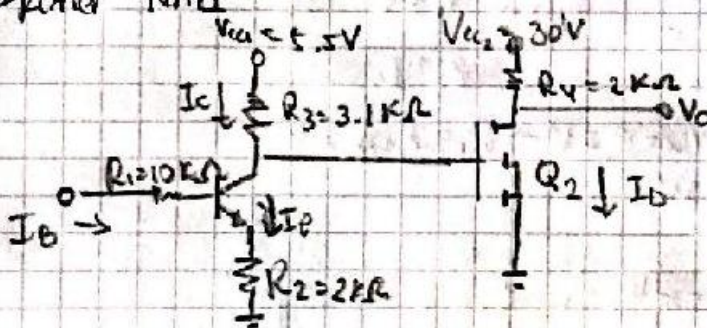 Vcc1 = 5.5V
Vcc2 = 30V
Ic
R3=3.1KΩ
R4=2KΩ
Vo
R1=10KΩ
Q2
ID
IB
IE
R2=2KΩ